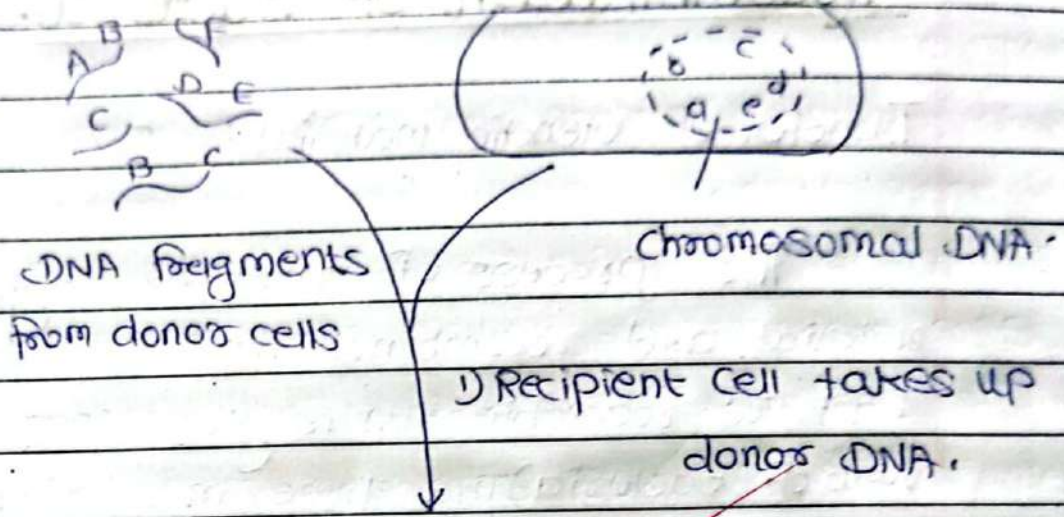 A B F
D E
C
B C
b c
d
a e
DNA fragments
from donor cells
Chromosomal DNA.
1) Recipient cell takes up
donor DNA.